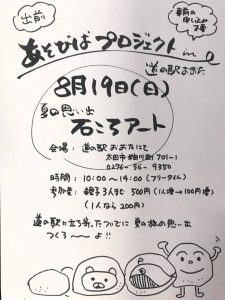 出前
事前の
申し込み
不要
あそびば プロジェクト in
道の駅おおた
8月19日(日)
夏の思い出
石ころアート
会場: 道の駅 おおたにて
太田市 粕川町 701-1
0276-56-9350
時間: 10:00~14:00 (フリータイム)
参加費: 親子3人まで 500円 (1人増→100円増)
(1人なら 200円)
道の駅に立ち寄ったついでに 夏の旅の思い出
つくろ〜よ!!